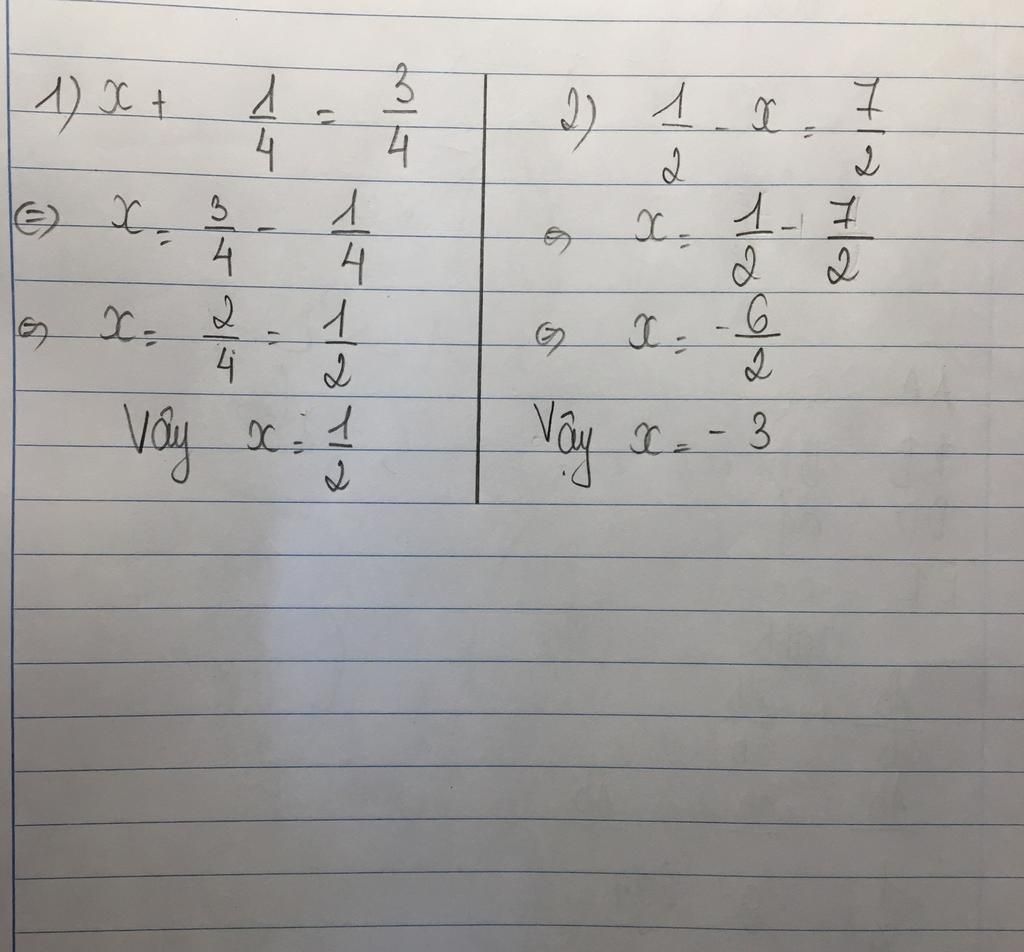 1) x + 1/4 = 3/4
⇔ x = 3/4 - 1/4
⇔ x = 2/4 = 1/2
Vây x = 1/2
2) 1/2 - x = 7/2
⇔ x = 1/2 - 7/2
⇔ x = -6/2
Vậy x = - 3